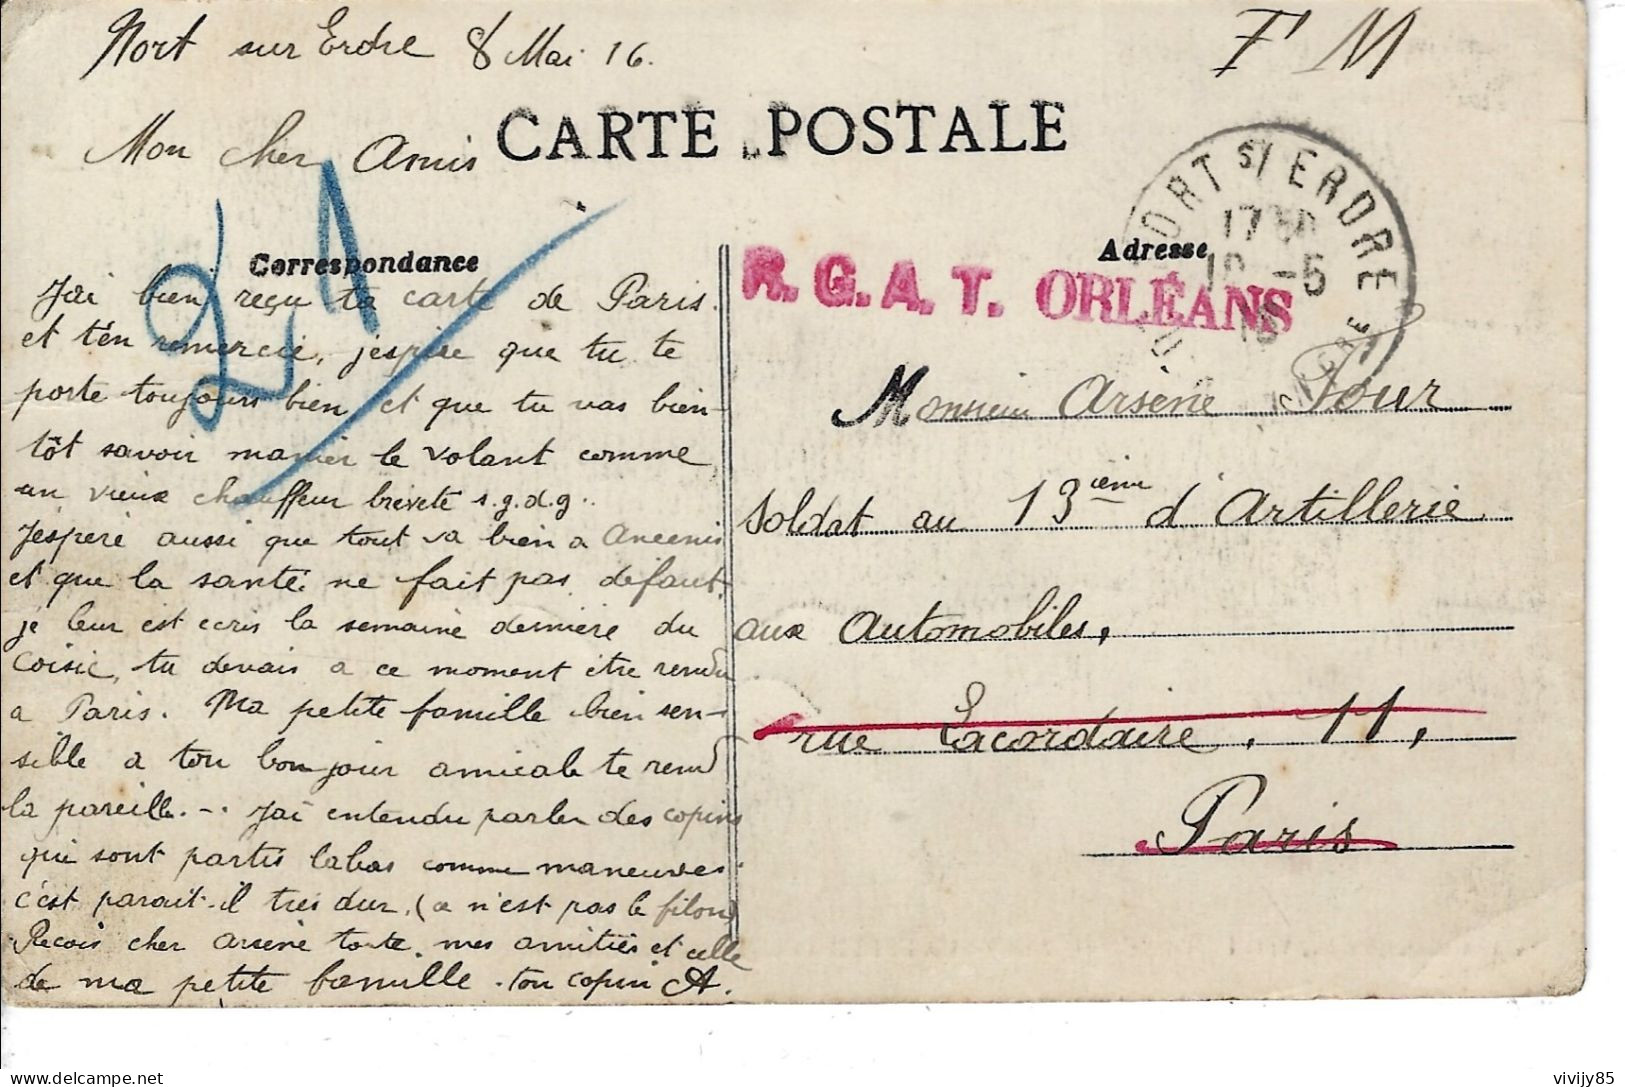 Nort sur Erdre 8 Mai 16.
F M
CARTE POSTALE
Mon cher Amis
21
Correspondance
J'ai bien reçu ta carte de Paris.
et t'en remercie, j'espère que tu te
porte toujours bien et que tu vas bien-
tôt savoir manier le volant comme
un vieux chauffeur breveté s.g.d.g..
J'espère aussi que tout va bien a Ancenis
et que la santé ne fait pas défaut.
je leur est écris la semaine dernière du
Coisic, tu devais a ce moment être rendu
a Paris. Ma petite famille bien sen-
sible a ton bonjour amicale te rend
la pareille. -. J'ai entendu parler des copins
qui sont partis labas comme maneuvres
c'est parait-il très dur, (ce n'est pas le filon)
Reçois cher Arsène toute mes amitiés et celle
de ma petite famille. ton copin A.
NORT S/ ERDRE
17
-5
16
Adresse
R.G.A.T. ORLÉANS
Monsieur Arsène Jour
Soldat au 13ième d'Artillerie
aux Automobiles,
rue Lacordaire, 11,
Paris
vivijy85